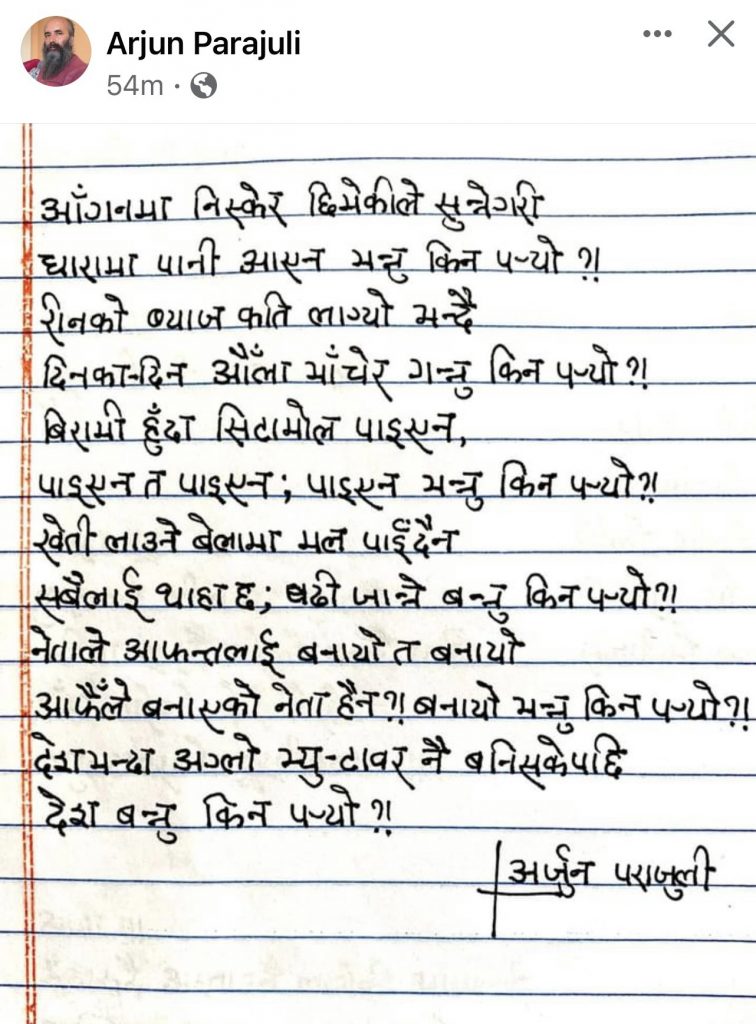 Arjun Parajuli
54m
आँगनमा निस्केर छिमेकीले सुन्नेगरी
धारामा पानी आएन भन्नु किन पर्‍यो ?!
रीनको ब्याज कति लाग्यो भन्दै
दिनका-दिन औंला भाँचेर गन्नु किन पर्‍यो ?!
बिरामी हुँदा सिटामोल पाइएन,
पाइएन त पाइएन; पाइएन भन्नु किन पर्‍यो ?!
खेती लाउने बेलामा मल पाईँदैन
सबैलाई थाहा छ; बढी जान्ने बन्नु किन पर्‍यो ?!
नेताले आफन्तलाई बनायो त बनायो
आफैँले बनाएको नेता हैन ?! बनायो भन्नु किन पर्‍यो ?!
देशभन्दा अग्लो भ्यु-टावर नै बनिसकेपछि
देश बन्नु किन पर्‍यो ?!
अर्जुन पराजुली